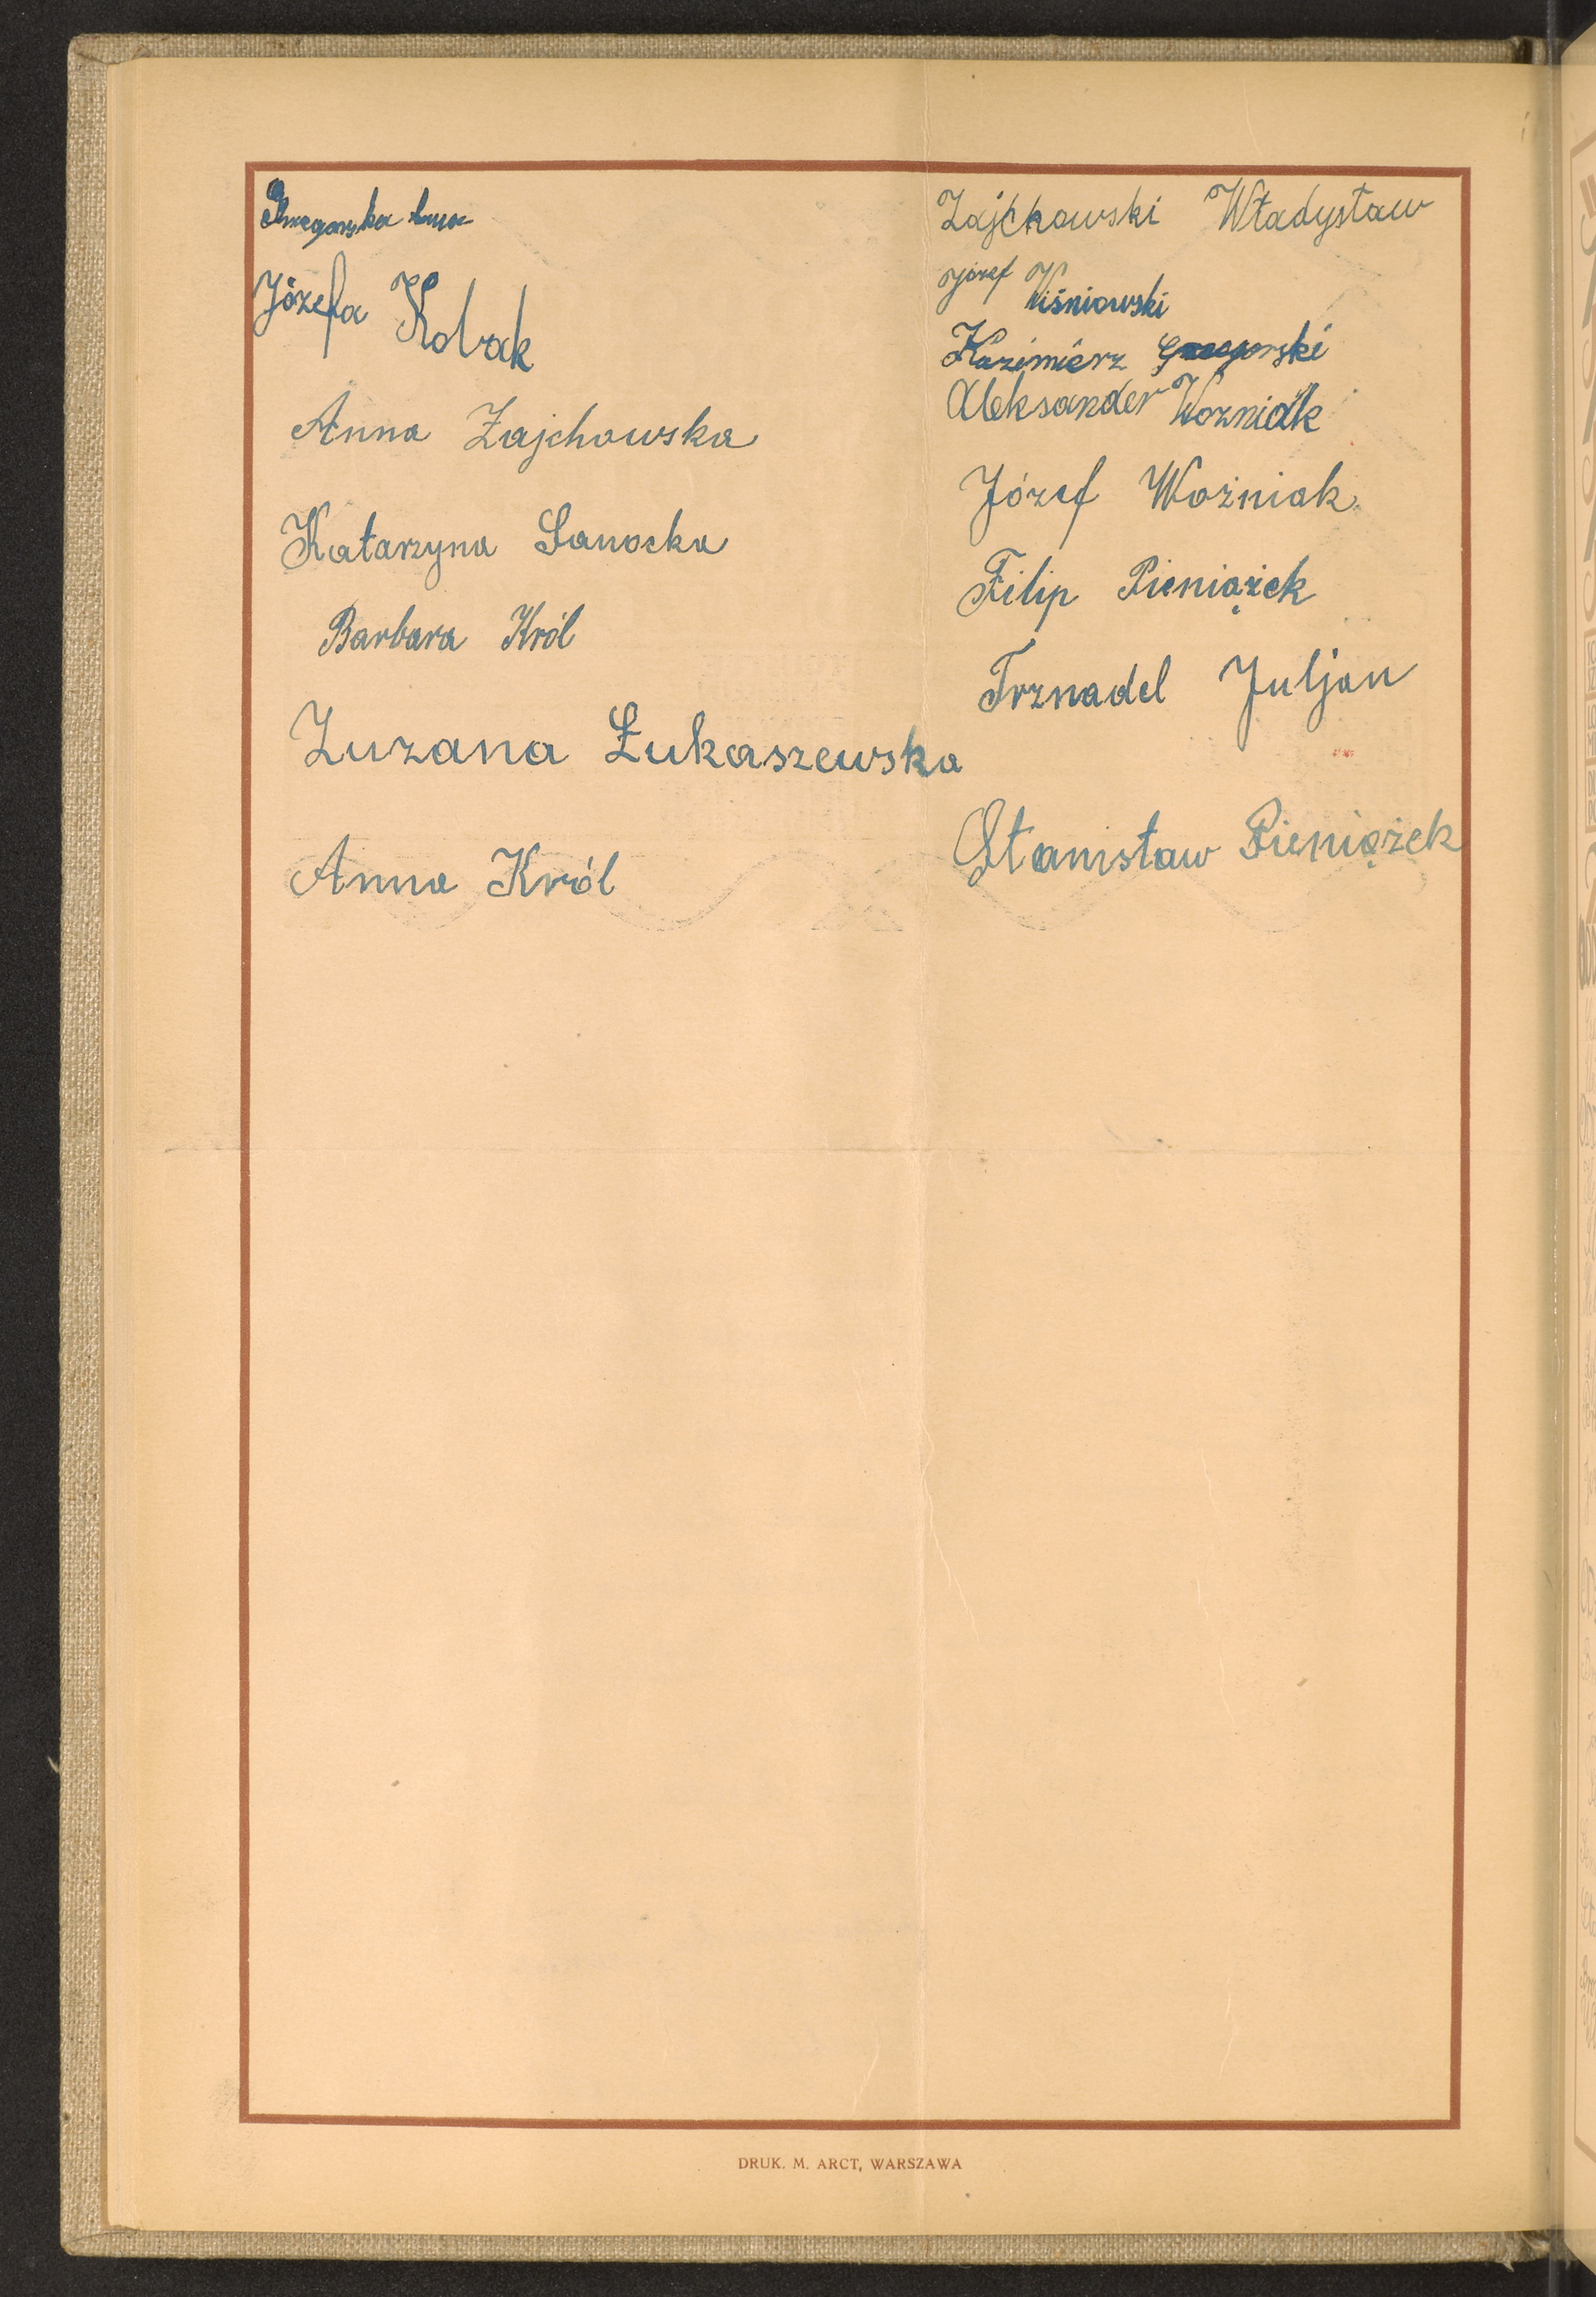 Józefa Kobak
Anna Zajchowska
Katarzyna Sanocka
Barbara Król
Zuzana Łukaszewska
Anna Król
Zajchowski Władysław
Józef Wiśniowski
Kazimierz
Aleksander Wozniak
Józef Woźniak
Filip Pieniążek
Trznadel Juljan
Stanisław Pieniążek
DRUK. M. ARCT, WARSZAWA